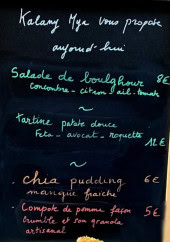 Kalany Mye vous propose
aujourd'hui
Salade de boulghour 8€
concombre - citron - ail - tomate
~
tartine patate douce
Feta - avocat - roquette
12€
~
- chia pudding 6€
mangue fraîche
- Compote de pomme façon 5€
crumble et son granola
artisanal